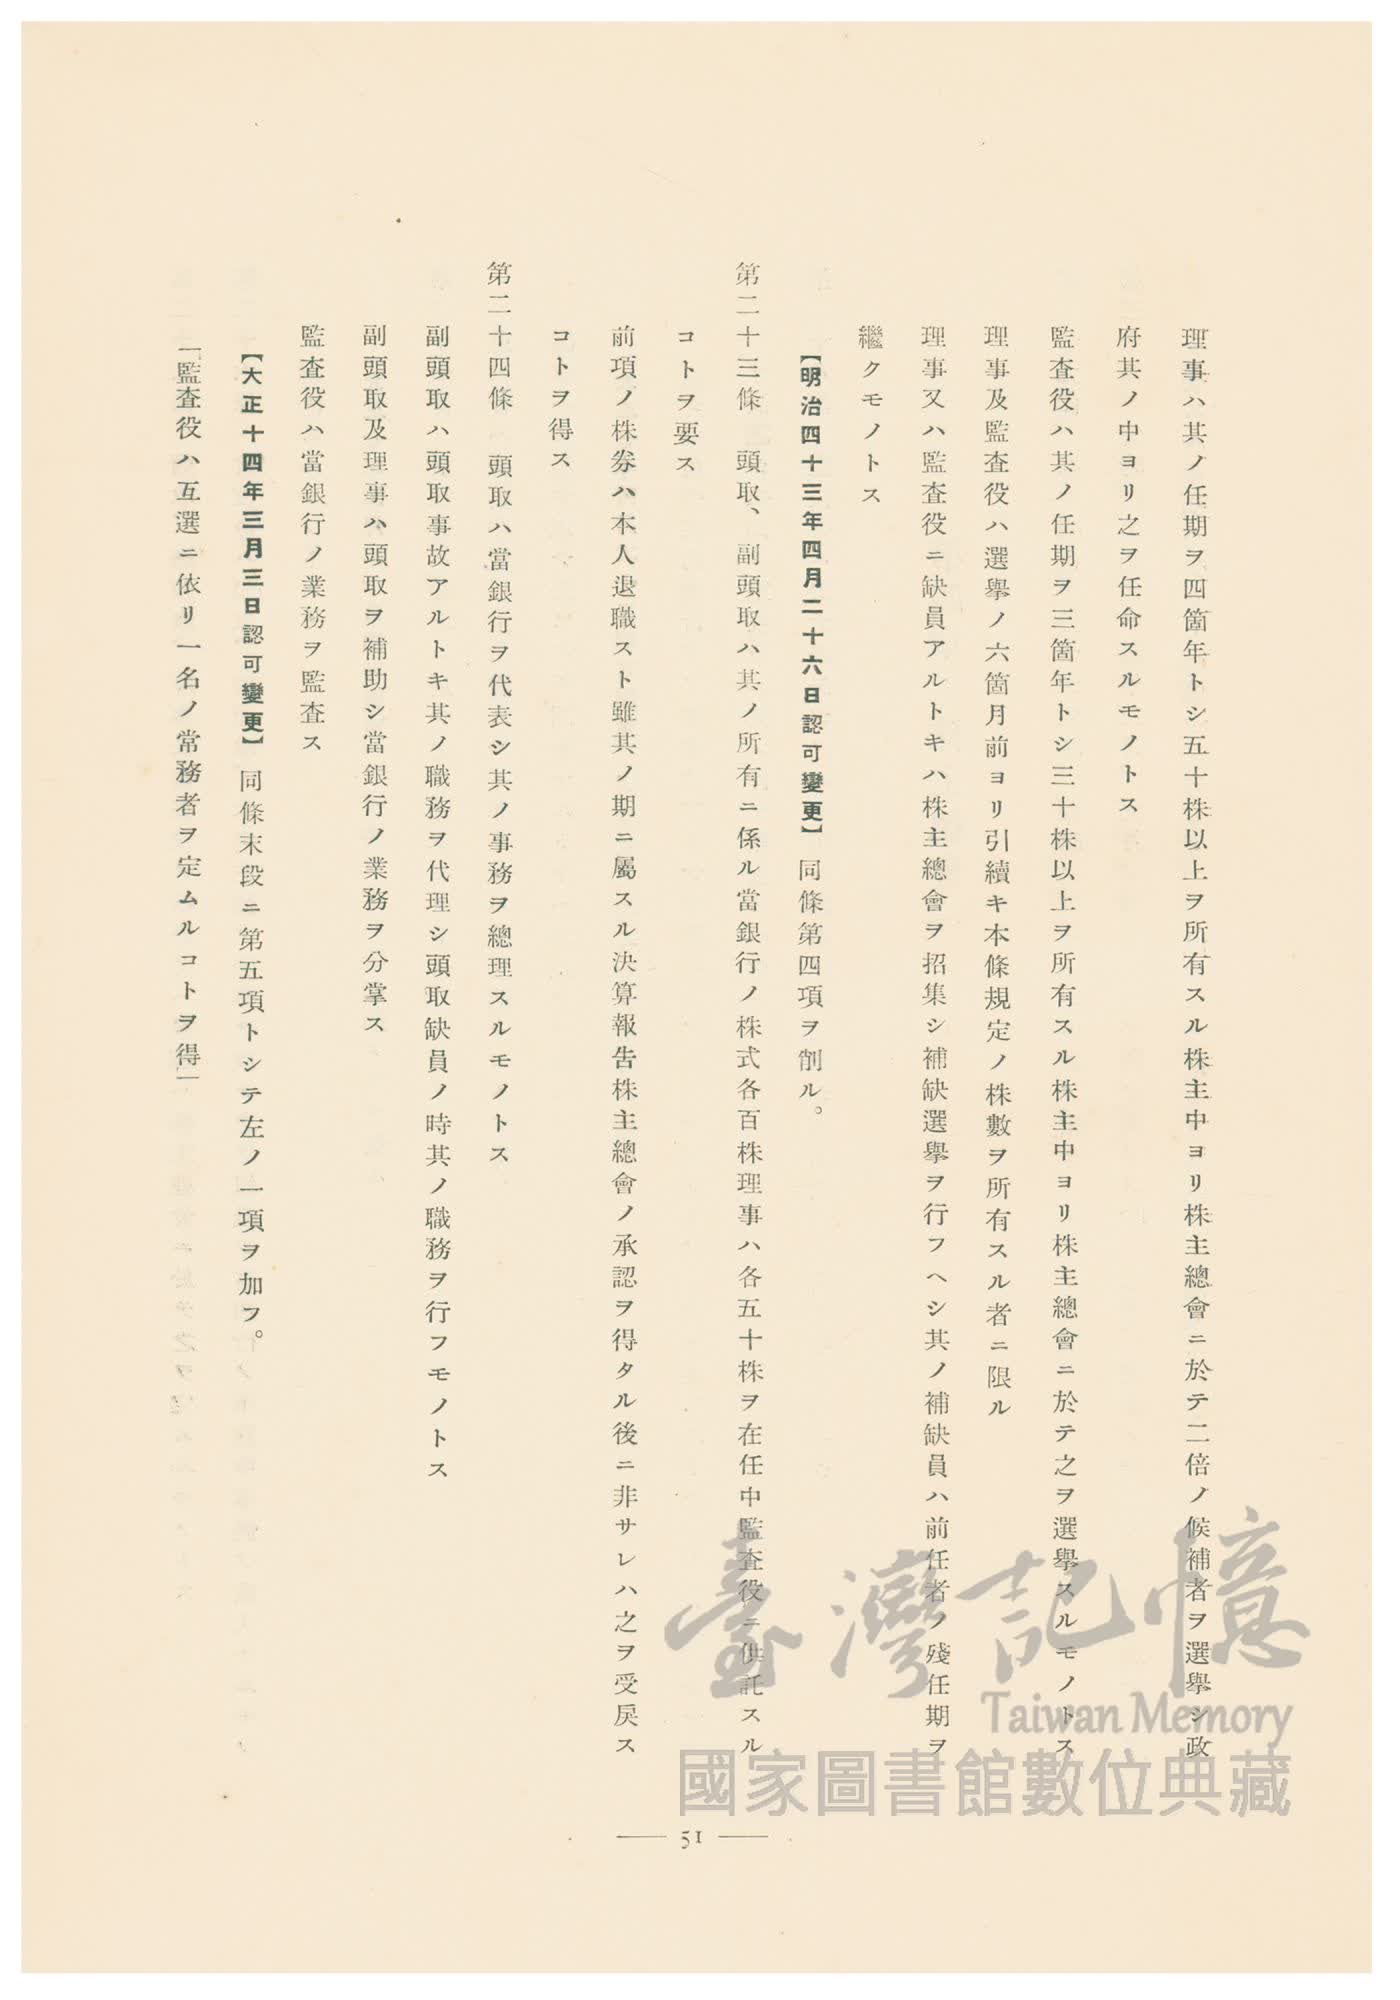 理事ハ其ノ任期ヲ四箇年トシ五十株以上ヲ所有スル株主中ヨリ株主總會ニ於テ二倍ノ候補者ヲ選擧シ政
府其ノ中ヨリ之ヲ任命スルモノトス
監査役ハ其ノ任期ヲ三箇年トシ三十株以上ヲ所有スル株主中ヨリ株主總會ニ於テ之ヲ選擧スルモノトス
理事及監査役ハ選擧ノ六箇月前ヨリ引續キ本條規定ノ株數ヲ所有スル者ニ限ル
理事又ハ監査役ニ缺員アルトキハ株主總會ヲ招集シ補缺選擧ヲ行フヘシ其ノ補缺員ハ前任者ノ殘任期ヲ
繼クモノトス
【明治四十三年四月二十六日認可變更】同條第四項ヲ削ル。
第二十三條 頭取、副頭取ハ其ノ所有ニ係ル當銀行ノ株式各百株理事ハ各五十株ヲ在任中監査役ニ供託スル
コトヲ要ス
前項ノ株券ハ本人退職スト雖其ノ期ニ屬スル決算報告株主總會ノ承認ヲ得タル後ニ非サレハ之ヲ受戾ス
コトヲ得ス
第二十四條 頭取ハ當銀行ヲ代表シ其ノ事務ヲ總理スルモノトス
副頭取ハ頭取事故アルトキ其ノ職務ヲ代理シ頭取缺員ノ時其ノ職務ヲ行フモノトス
副頭取及理事ハ頭取ヲ補助シ當銀行ノ業務ヲ分掌ス
監査役ハ當銀行ノ業務ヲ監査ス
【大正十四年三月三日認可變更】同條末段ニ第五項トシテ左ノ一項ヲ加フ。
「監査役ハ互選ニ依リ一名ノ常務者ヲ定ムルコトヲ得」
51
臺灣記憶
Taiwan Memory
國家圖書館數位典藏